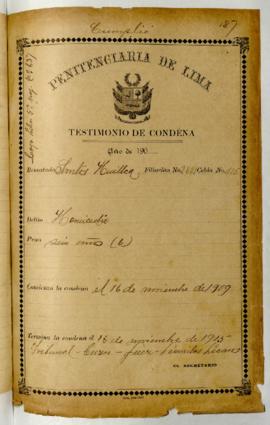 Cumplió
187
PENITENCIARIA DE LIMA
TESTIMONIO DE CONDENA
Año de 190
Rematado Santos Huallca Filiación No. Celda No.
Delito Homicidio
Pena seis años (6)
Comienza la condena el 16 de noviembre de 1909
Termina la condena el 16 de noviembre de 1915
Tribunal - Cuzco - Juez -
EL SECRETARIO